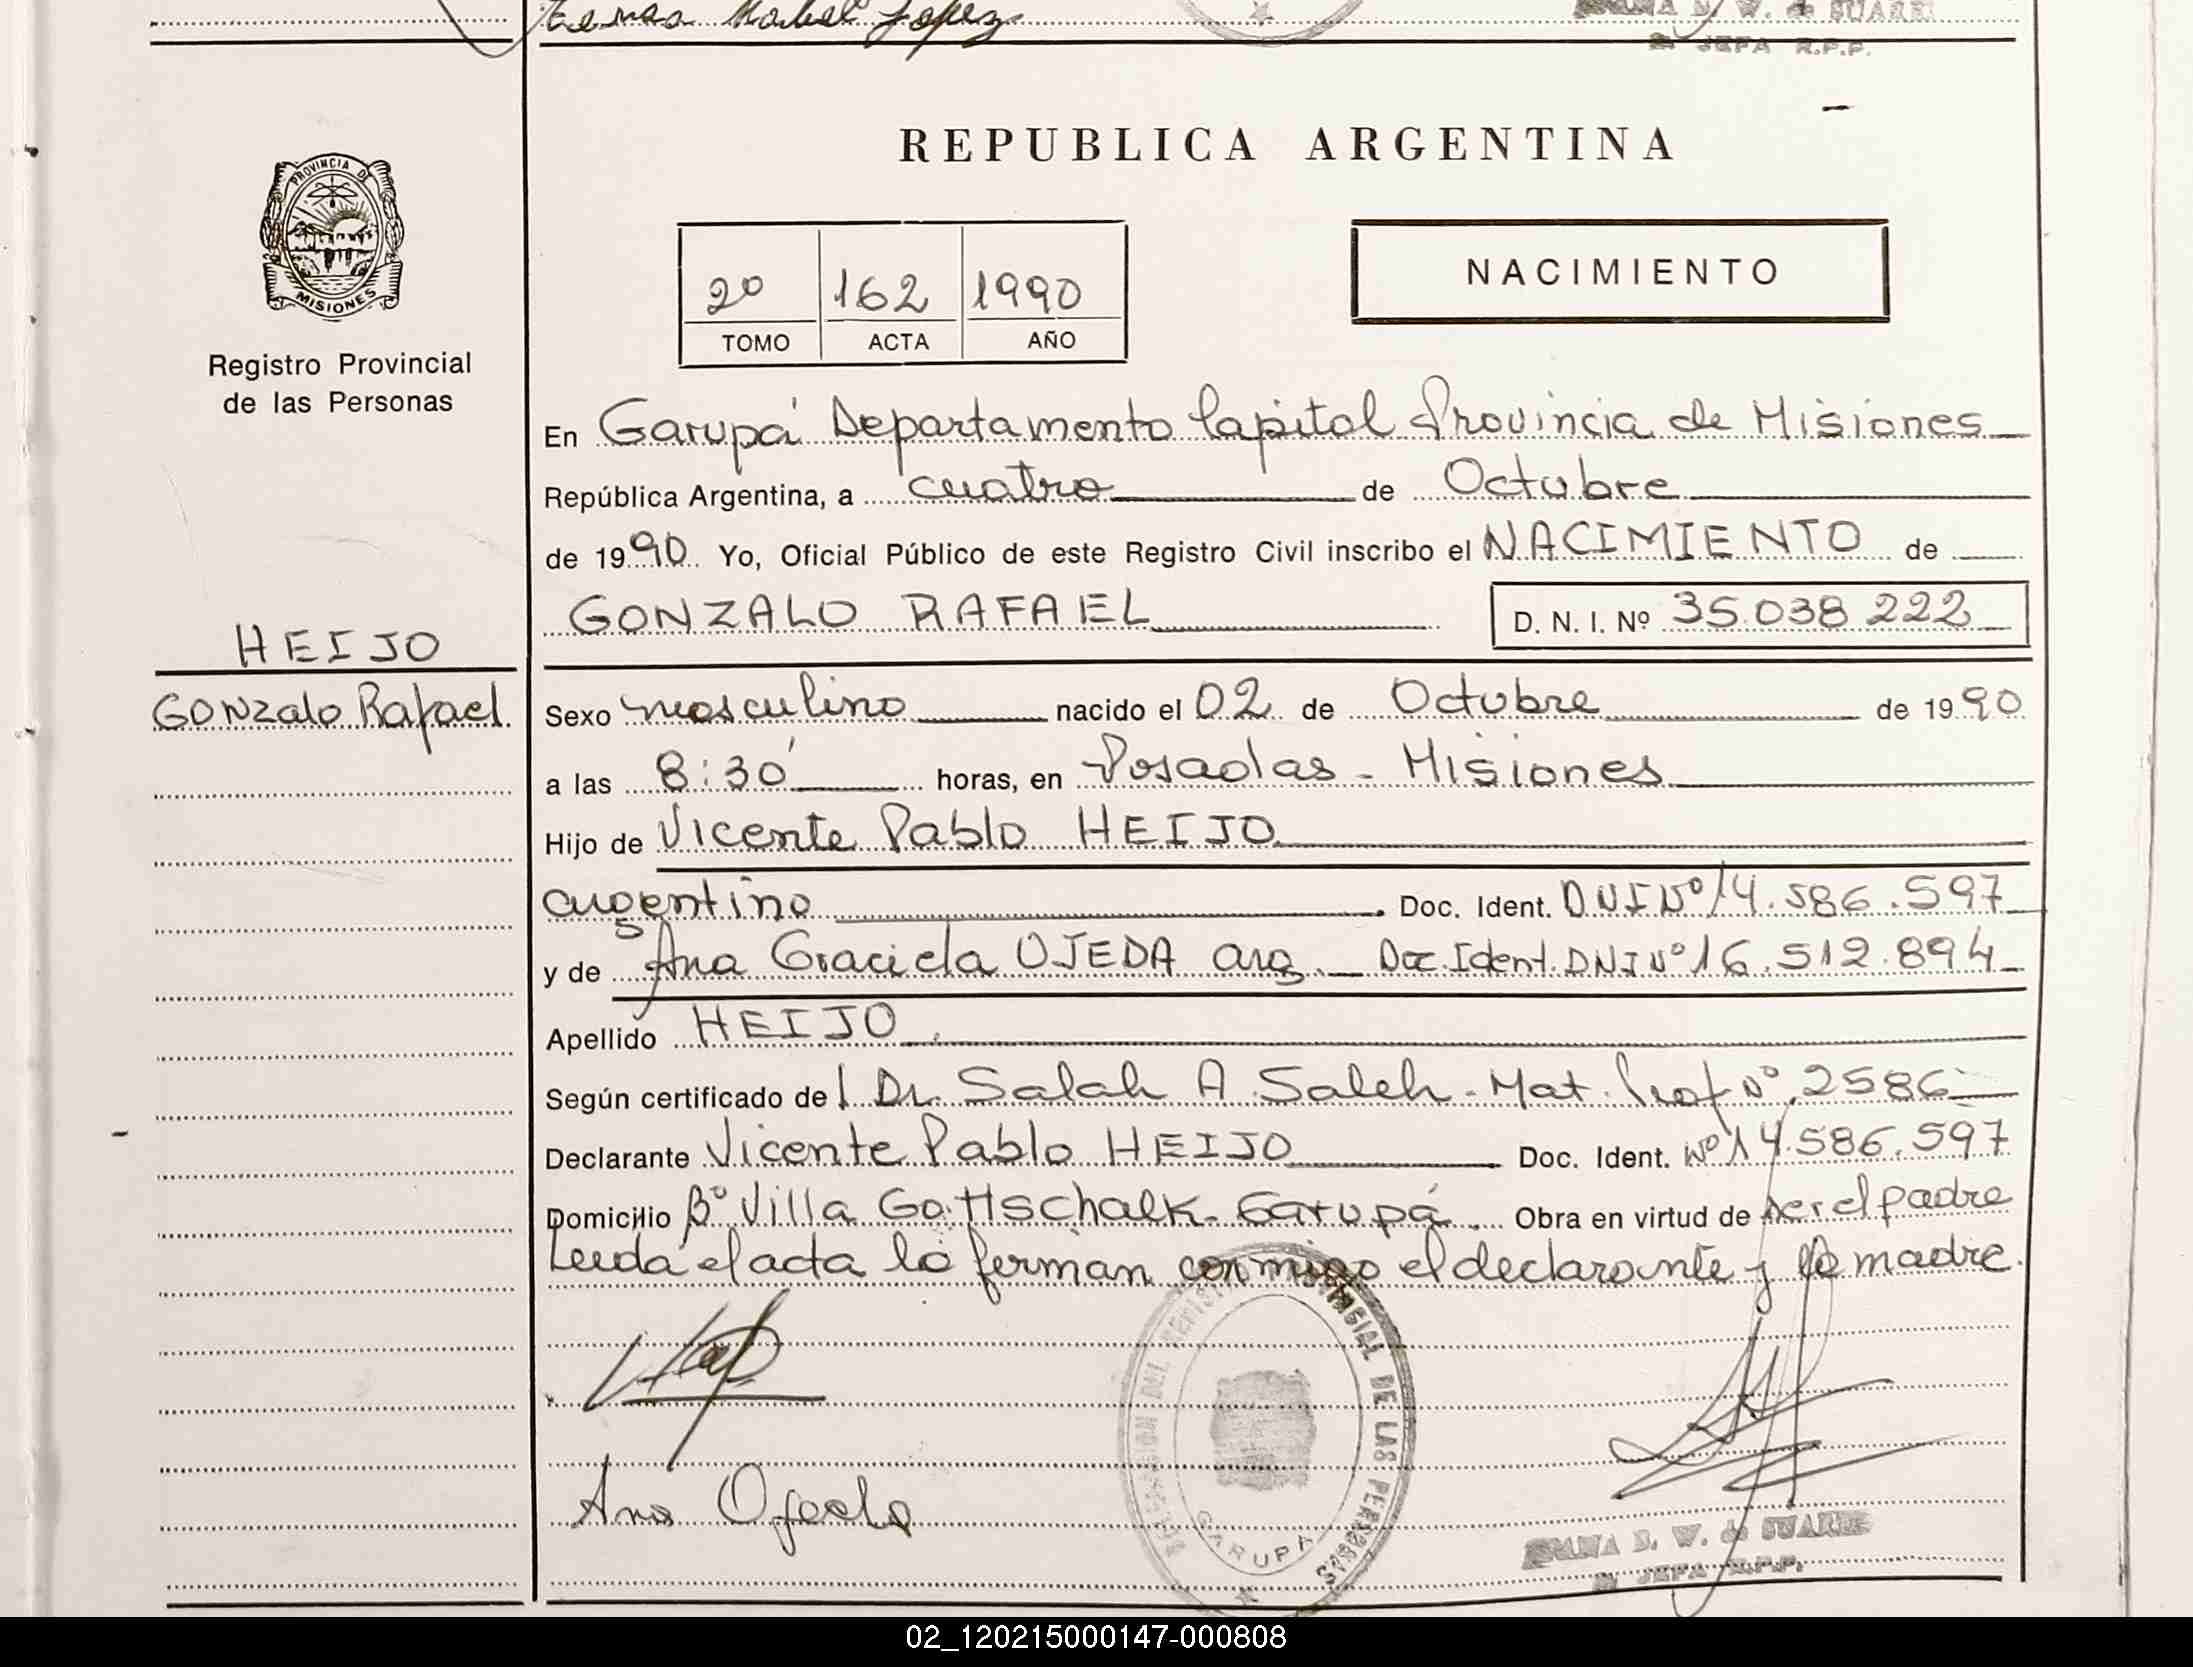 Mabel Lopez
W. de SUAREZ
JEFA R.P.P.
PROVINCIA DE
MISIONES
Registro Provincial
de las Personas
REPUBLICA ARGENTINA
2º 162 1990
TOMO ACTA AÑO
NACIMIENTO
En Garupá Departamento Capital Provincia de Misiones
República Argentina, a cuatro de Octubre
de 1990 Yo, Oficial Público de este Registro Civil inscribo el NACIMIENTO de
GONZALO RAFAEL D. N. I. Nº 35.038.222
HEIJO
Gonzalo Rafael.
Sexo masculino nacido el 02 de Octubre de 1990
a las 8:30 horas, en Posadas - Misiones
Hijo de Vicente Pablo HEIJO
argentino Doc. Ident. DNI Nº 14.586.597
y de Ana Graciela OJEDA arg. Doc. Ident. DNI Nº 16.512.894
Apellido HEIJO.
Según certificado del Dr. Salah A. Saleh - Mat. Prof Nº 2586
Declarante Vicente Pablo HEIJO Doc. Ident. Nº 14.586.597
Domicilio Bº Villa Gottschalk - Garupá. Obra en virtud de ser el padre
Leida el acta la ferman conmigo el declarante y la madre.
Ana Ojeda
DELEGACION DEL REGISTRO PROVINCIAL DE LAS PERSONAS
GARUPA
W. de SUAREZ
JEFA R.P.P.
02_120215000147-000808